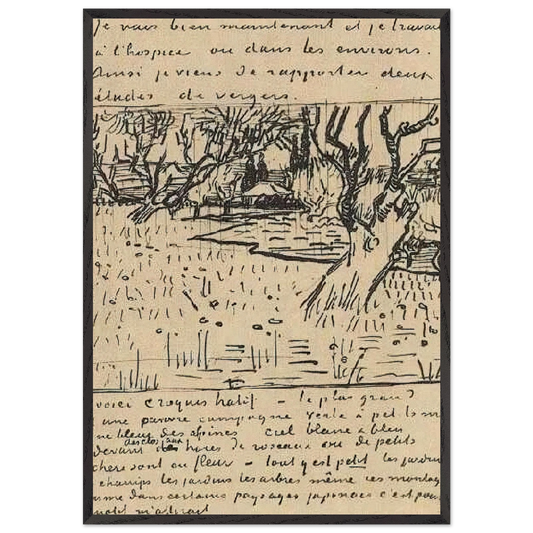 Je vais bien maintenant et je travaille
à l'hospice ou dans les environs.
Ainsi je viens de rapporter deux
études de vergers.
voici croquis hatif – le plus grand
une pauvre campagne verte à petits m
bleu des alpines ciel blanc & bleu
devant des clos aux haies de roseaux où de petits
sont en fleur – tout y est petit les jardins
champs les jardins les arbres même ces montag
mme dans certains paysages japonais c'est pour
motif m'attirait